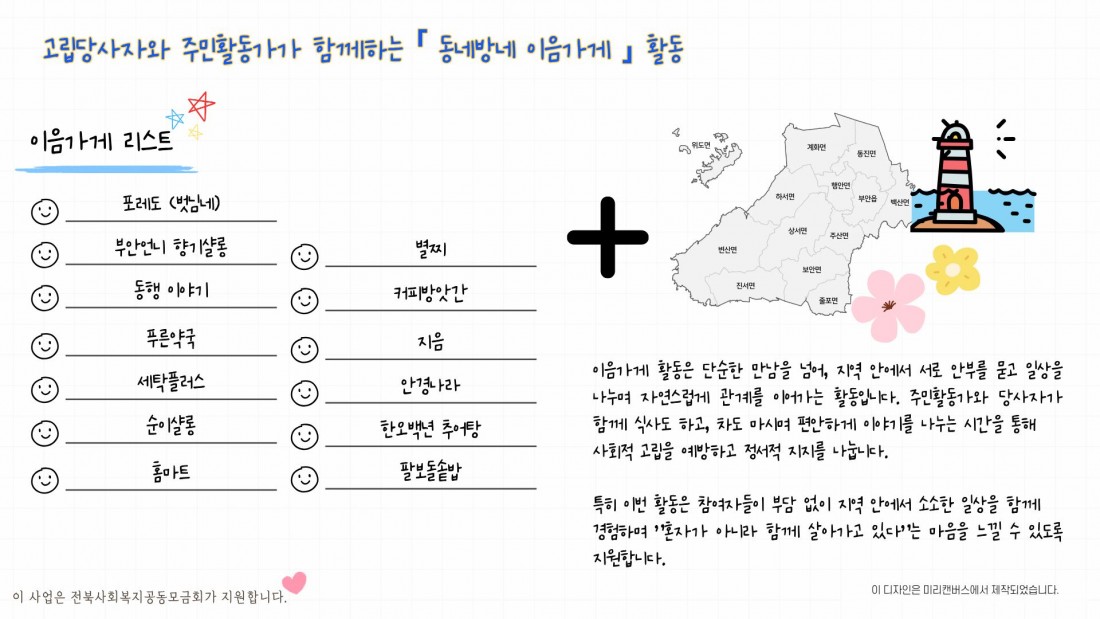 고립당사자와 주민활동가가 함께하는『 동네방네 이음가게 』활동
이음가게 리스트
포레도 (벗님네)
부안언니 향기샬롱
동행 이야기
푸른약국
세탁플러스
순이샬롱
홈마트
별찌
커피방앗간
지음
안경나라
한오백년 추어탕
팔보돌솥밥
위도면
계화면
동진면
행안면
하서면
부안읍
백산면
상서면
주산면
변산면
보안면
진서면
줄포면
이음가게 활동은 단순한 만남을 넘어, 지역 안에서 서로 안부를 묻고 일상을
나누며 자연스럽게 관계를 이어가는 활동입니다. 주민활동가와 당사자가
함께 식사도 하고, 차도 마시며 편안하게 이야기를 나누는 시간을 통해
사회적 고립을 예방하고 정서적 지지를 나눕니다.
특히 이번 활동은 참여자들이 부담 없이 지역 안에서 소소한 일상을 함께
경험하며 ''혼자가 아니라 함께 살아가고 있다''는 마음을 느낄 수 있도록
지원합니다.
이 사업은 전북사회복지공동모금회가 지원합니다.
이 디자인은 미리캔버스에서 제작되었습니다.